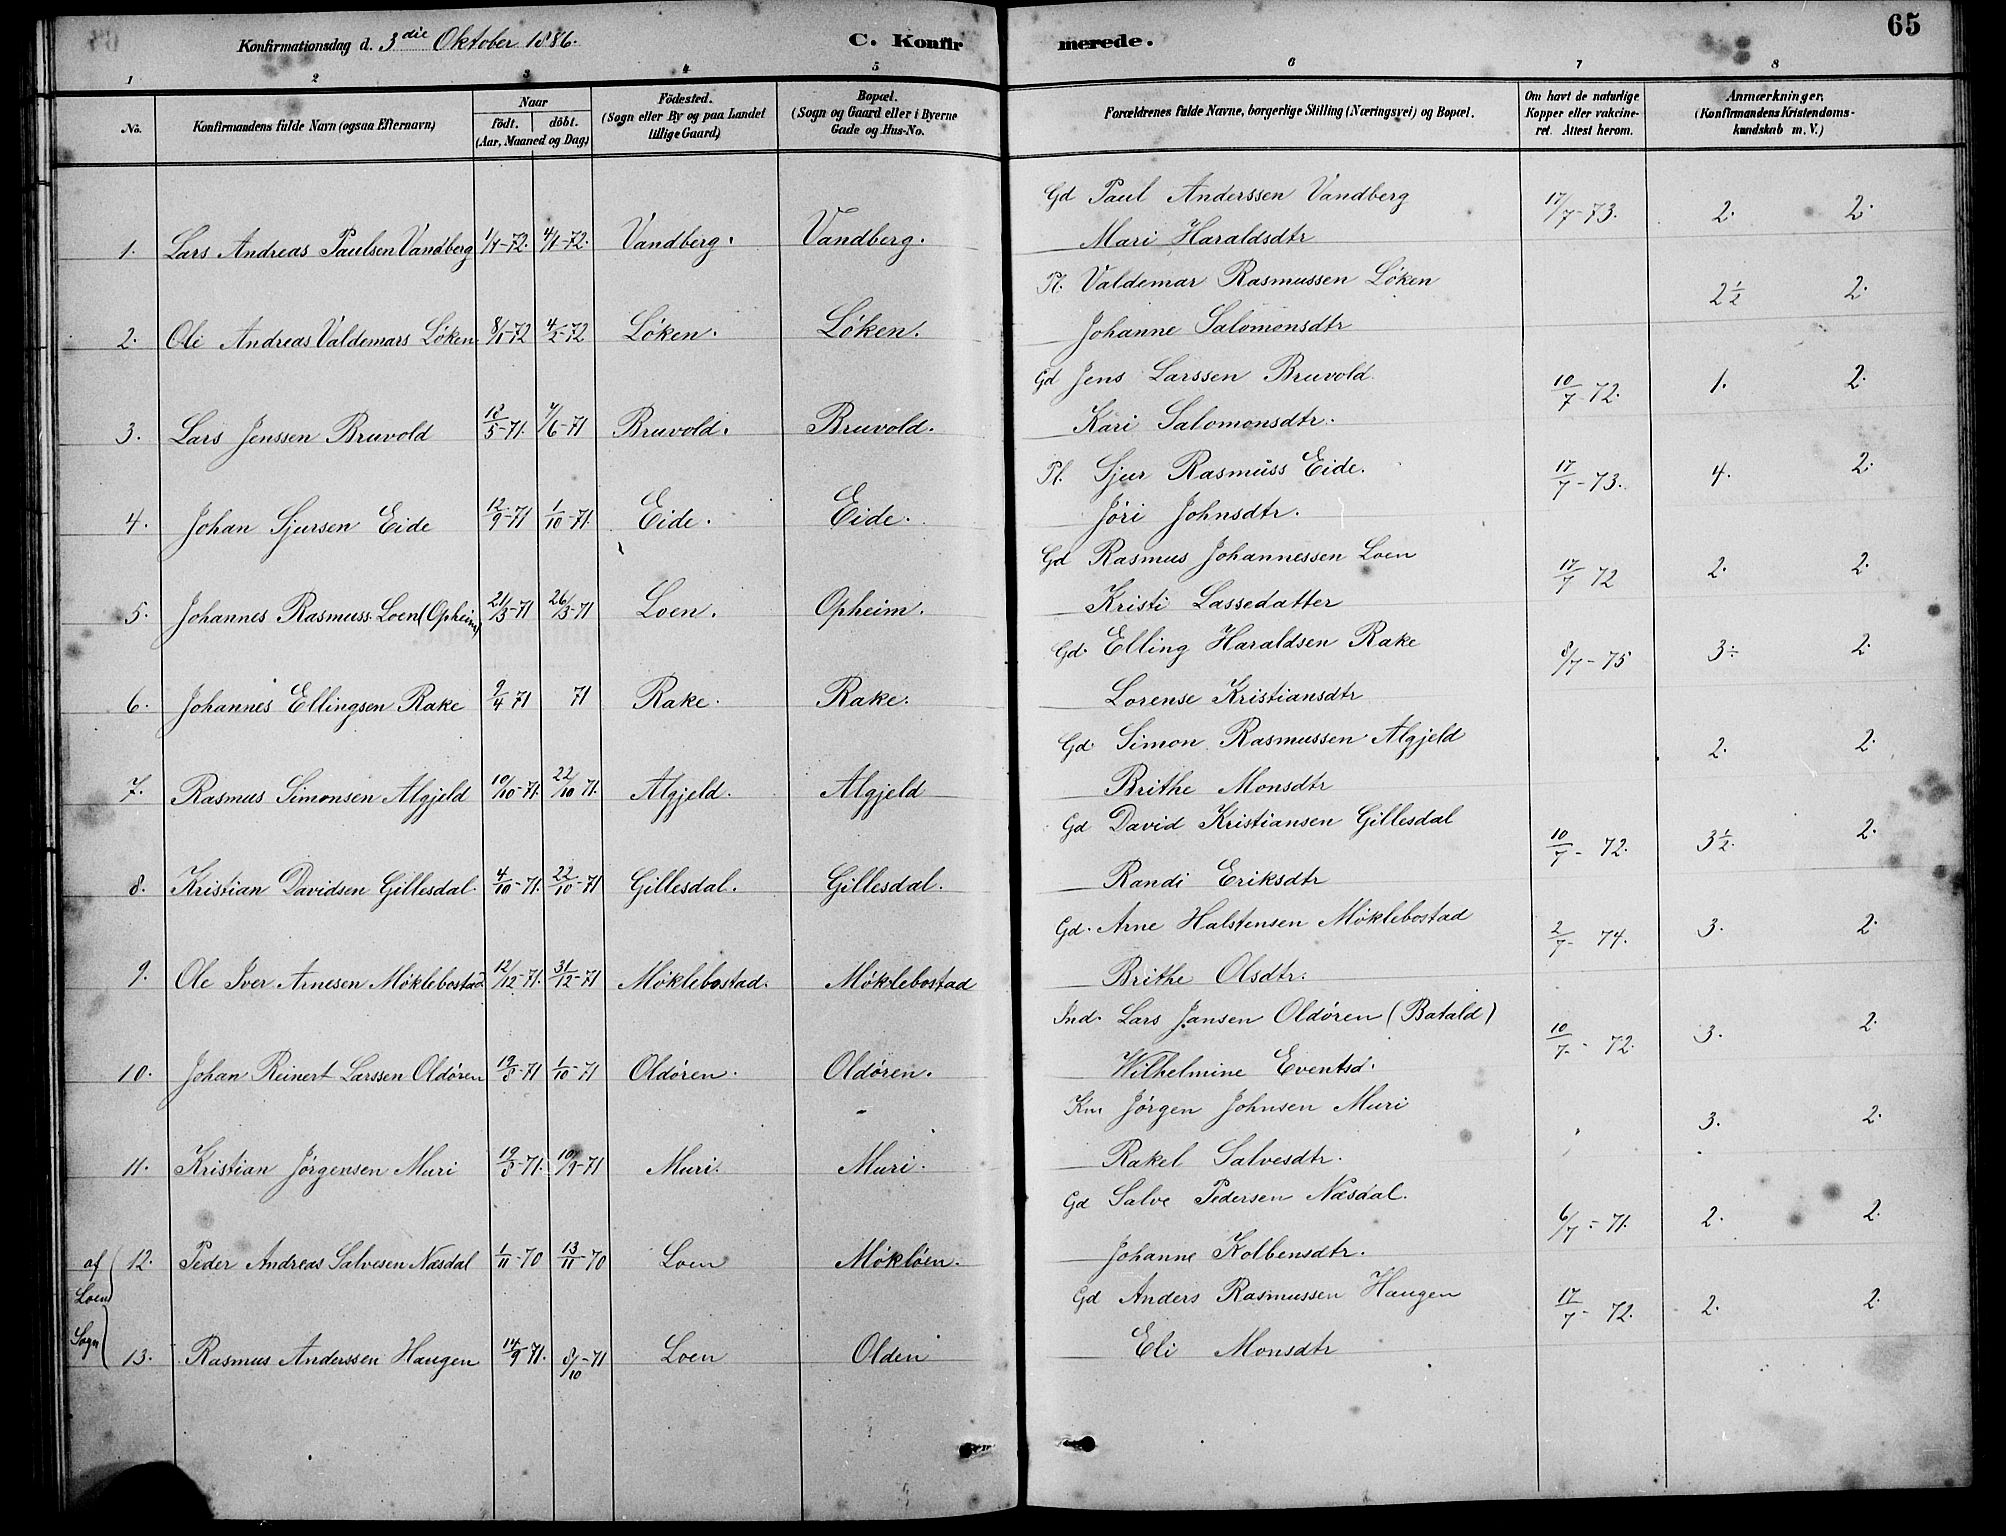 Konfirmationsdag d. 3die Oktober 1886.
C. Konfirmerede.
65
1 2 3 4 5 6 7 8
No.
Konfirmandens fulde Navn (ogsaa Efternavn)
Naar
födt. döbt.
(Aar, Maaned og Dag)
Födested.
(Sogn eller By og paa Landet
tillige Gaard)
Bopæl.
(Sogn og Gaard eller i Byerne
Gade og Hus-No.
Forældrenes fulde Navne, borgerlige Stilling (Næringsvei) og Bopæl.
Om havt de naturlige
Kopper eller vakcine-
ret. Attest herom.
Anmærkninger,
(Konfirmandens Kristendoms-
kundskab m. V.)
Gd Paul Anderssen Vandberg 17/7-73. 2. 2.
1. Lars Andreas Paulsen Vandberg 1/1-72. 4/1-72. Vandberg. Vandberg. Mari Haraldsdtr
Pl. Valdemar Rasmussen Löken 2½ 2.
2. Oli Andreas Valdemars Löken 8/1-72 4/2-72 Löken. Löken. Johanne Salomonsdtr
Gd Jens Larssen Bruvold 10/7-72. 1. 2.
3. Lars Jenssen Bruvold 18/5-71. 4/6-71 Bruvold. Bruvold. Kari Salomonsdtr.
Pl. Sjur Rasmuss Eide. 17/7-73. 4. 2.
4. Johan Sjursen Eide 12/9-71 1/10-71. Eide. Eide. Jöri Johnsdtr.
Gd Rasmus Johannessen Loen 17/7 72 2. 2.
5. Johannes Rasmuss. Loen (Opheim) 21/3-71 26/3-71 Loen. Opheim. Kristi Lassedatter
Gd. Elling Haraldsen Rake 8/7-75 3÷ 2.
6. Johannes Ellingsen Rake 9/4 71 71 Rake. Rake. Lorense Kristiansdtr
Gd. Simon Rasmussen Algjeld 2. 2.
7. Rasmus Simonsen Algjeld 10/10-71. 22/10 71. Algjeld. Algjeld Brithe Monsdtr
Gd David Kristiansen Gillesdal 10/7- 72. 3½. 2.
8. Kristian Davidsen Gillesdal. 4/10-71. 22/10-71 Gillesdal. Gillesdal. Randi Eriksdtr
Gd. Arne Halstensen Möklebostad 2/7- 74. 3. 2.
9. Ole Iver Arnesen Möklebostad 12/12-71. 31/12-71 Möklebostad. Möklebostad Brithe Olsdtr.
Ind. Lars Jansen Oldören (Batald) 10/7- 72. 3. 2.
10. Johan Reinert Larssen Oldören 19/8-71 1/10-71 Oldören. Oldören. Wilhelmine Eventsd.
Km Jörgen Johnsen Muri 3. 2.
11. Kristian Jörgensen Muri 19/8-71. 10/9-71 Muri. Muri. Rakel Salvesdtr.
Gd Salve Pedersen Næsdal. 6/7-71. 2. 2.
af 12. Peder Andreas Salvesen Næsdal 1/11-70 13/11-70 Loen Møkløen. Johanne Kolbensdtr.
Loen
Gd Anders Rasmussen Haugen 17/7- 72. 2. 2.
Sogn 13. Rasmus Anderssen Haugen 14/9-71. 8/10-71 Loen Olden Eli Monsdtr